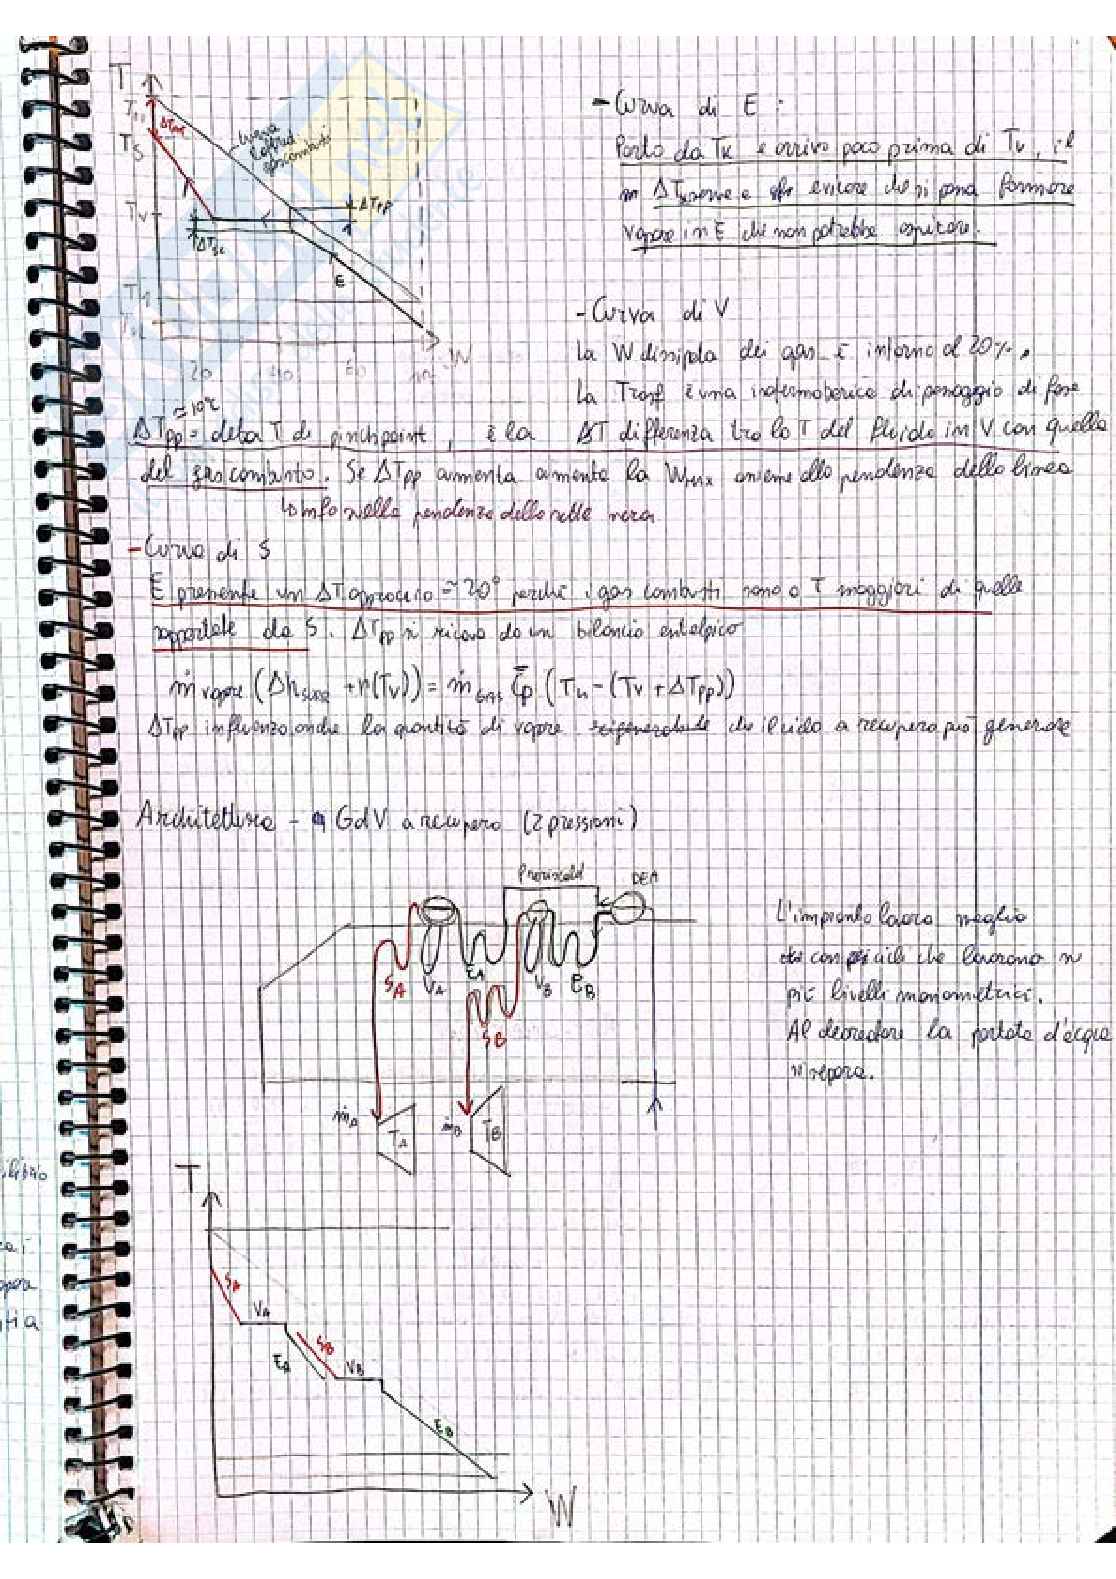 T
T11
ΔTapp
TS
curva raffred gas combusti
TV
ΔTPP
ΔTSC
E
W
20
40
60
- Curva di E :
Parto da TK e arrivo poco prima di TV, il
evitare che si possa formare
vapore in E che non potrebbe ospitare.
- Curva di V
La W dissipata dei gas è intorno al 20%.
La Trasf è una isotermobarica di passaggio di fase
≈10°C
ΔTPP = delta T di pinch point, è la ΔT differenza tra la T del fluido in V con quella
del gas combusto. Se ΔTPP aumenta aumenta la insieme alla pendenza della linea
↳ info sulla pendenza della retta nera
- Curva di S
È presente un ΔTapproccio ≈ 20° perché i gas combusti sono a T maggiori di quelle
sopportate da S. ΔTPP si ricava da un bilancio entalpico
ṁ vapore (Δhsurr + r(TV)) = ṁ gas c̄p (T11 - (TV + ΔTPP))
ΔTPP influenza anche la quantità di vapore che il ciclo a recupero può generare
Architettura - GdV a recupero (2 pressioni)
Preriscald
DEA
SA
VA
EA
VB
EB
SB
L'impianto lavora meglio
con cicli che lavorano su
più livelli manometrici.
Al la portata d'acqua
si separa.
ṁA
TA
ṁB
TB
T
SA
VA
EA
SB
VB
EB
W